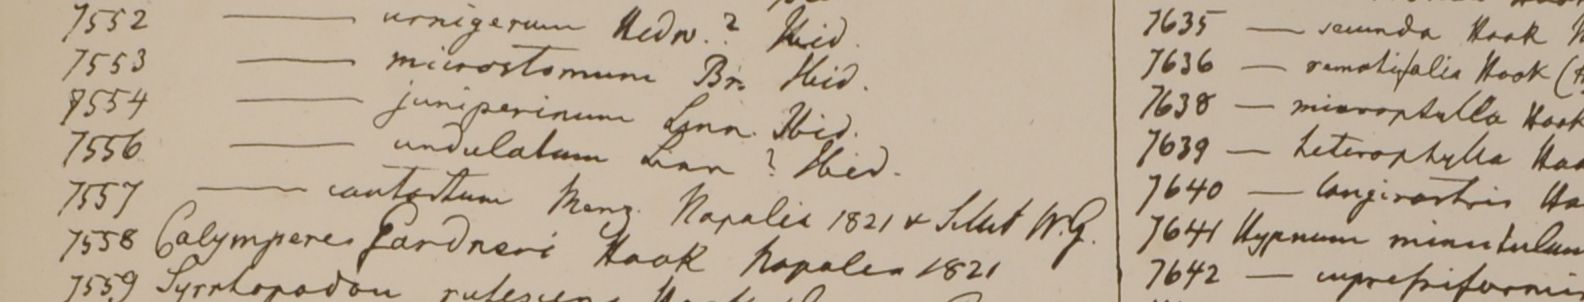 7552 —— urnigerum Hedw. ? Ibid.
7553 —— microstomum Br. Ibid.
7554 —— juniperinum Linn. Ibid.
7556 —— undulatum Linn ? Ibid.
7557 —— contortum Menz. Napalia 1821 & Silhet W.G.
7558 Calymperes Gardneri Hook Napalea 1821
7559 Syrrhopodon rufescens Hook
7635 — secunda Hook
7636 — ramotifolia Hook
7638 — microphylla Hook
7639 — heterophylla
7640 — longirostris
7641 Hypnum minutulum
7642 — cupressiformis